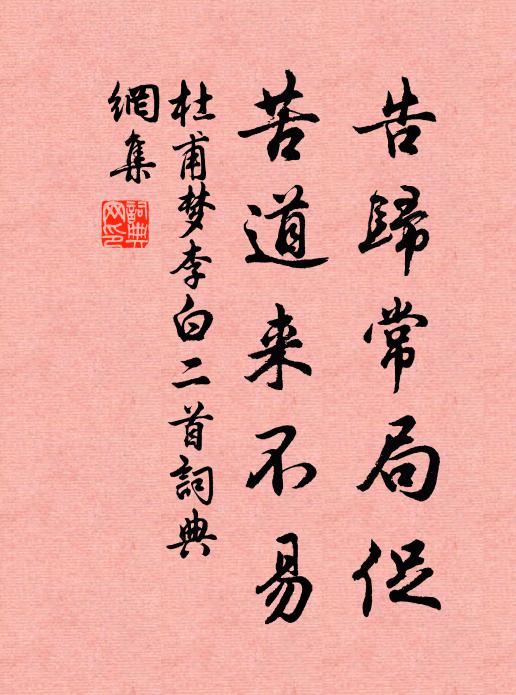 告歸常局促
苦道来不易
杜甫梦李白二首詞典
網集
詞典
网印